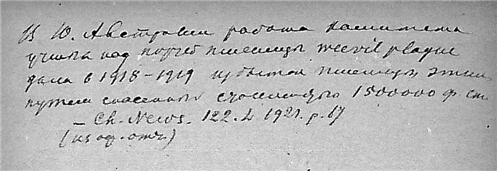 В Ю. Австралии работа комитета
учёных над порчей пшеницы weevil plague
дала в 1918-1919 избыток пшеницы, этим
путем спасенной, стоимостью 1500000 ф. ст.
— Ch. News. 122. L 1921. p. 67
(из оф. отч.)